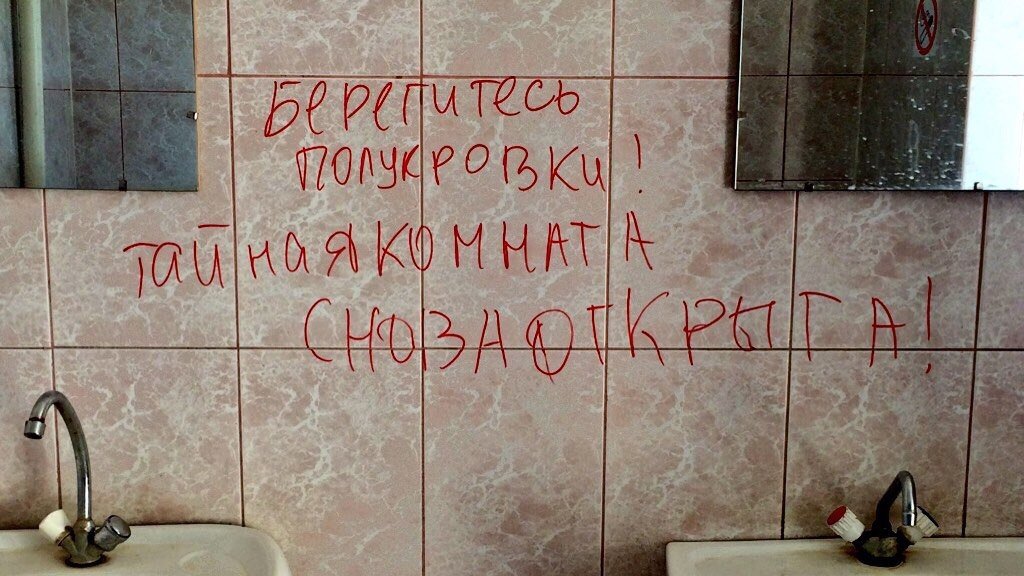 Берегитесь
полукровки!
тайная комната
снова открыта!